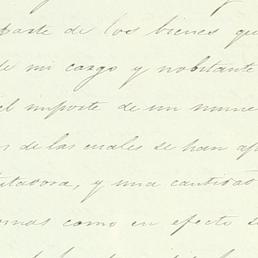 parte de los bienes qu
de mi cargo y nobstante
el importe de un nume
s de las cuales se han ap
tutadora, y una cantidad
ornas como en efecto s